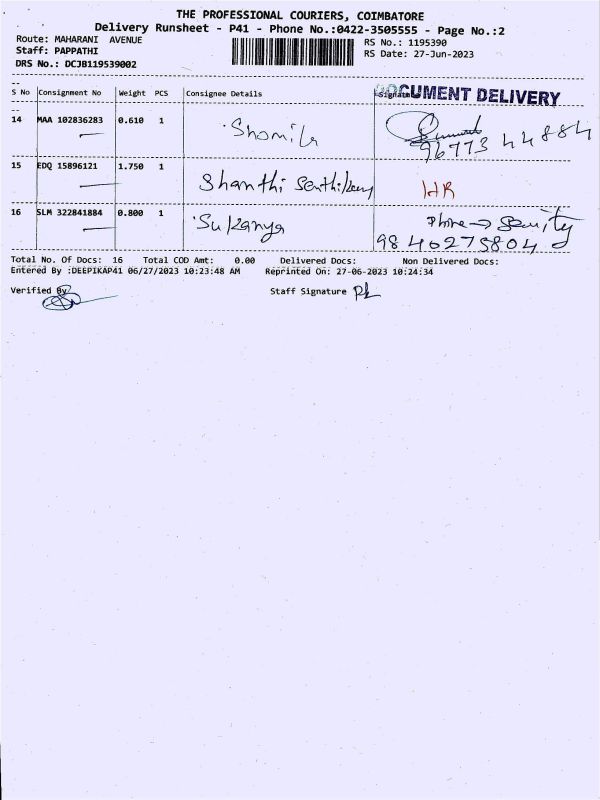 THE PROFESSIONAL COURIERS, COIMBATORE
Delivery Runsheet - P41 - Phone No.:0422-3505555 - Page No.:2
Route: MAHARANI AVENUE RS No.: 1195390
Staff: PAPPATHI RS Date: 27-Jun-2023
DRS No.: DCJB119539002
S No Consignment No Weight PCS Consignee Details Signature DOCUMENT DELIVERY
14 MAA 102836283 0.610 1 Shomila
96773 44884
15 EDQ 15896121 1.750 1 Shanthi HR
16 SLM 322841884 0.800 1 Sukanya Phone →
9840275804
Total No. Of Docs: 16 Total COD Amt: 0.00 Delivered Docs: Non Delivered Docs:
Entered By :DEEPIKAP41 06/27/2023 10:23:48 AM Reprinted On: 27-06-2023 10:24:34
Verified By Staff Signature